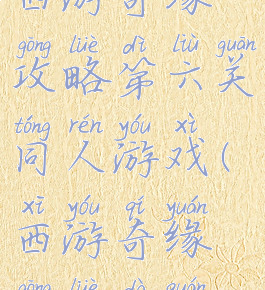 西游奇缘
gōng lüè dì liù guān
攻略第六关
tóng rén yóu xì
同人游戏(
xī yóu qí yuán
西游奇缘